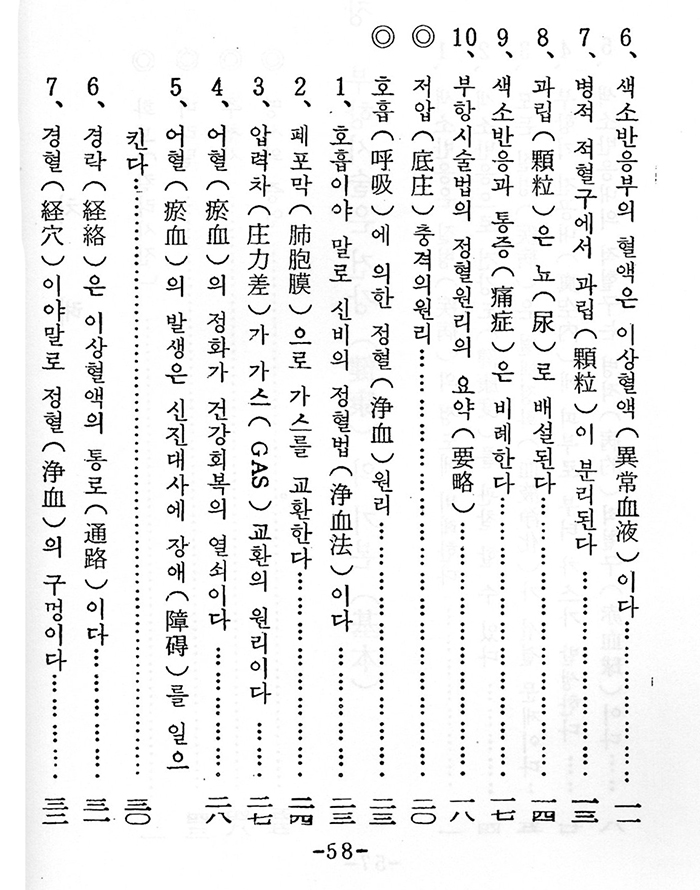 6、색소반응부의 혈액은 이상혈액(異常血液)이다…………… 一一
7、병적 적혈구에서 과립(顆粒)이 분리된다…………… 一三
8、과립(顆粒)은 뇨(尿)로 배설된다…………… 一四
9、색소반응과 통증(痛症)은 비례한다…………… 一七
10、부항시술법의 정혈원리의 요약(要略)…………… 一八
◎ 저압(底庄)충격의원리…………… 二〇
◎ 호흡(呼吸)에 의한 정혈(浄血)원리…………… 二三
1、호흡이야 말로 신비의 정혈법(浄血法)이다…………… 二三
2、폐포막(肺胞膜)으로 가스를 교환한다…………… 二四
3、압력차(庄力差)가 가스(GAS)교환의 원리이다…… 二七
4、어혈(瘀血)의 정화가 건강회복의 열쇠이다…………… 二八
5、어혈(瘀血)의 발생은 신진대사에 장애(障碍)를 일으
킨다…………… 三〇
6、경락(経絡)은 이상혈액의 통로(通路)이다…………… 三一
7、경혈(経穴)이야말로 정혈(浄血)의 구멍이다…………… 三二
-58-